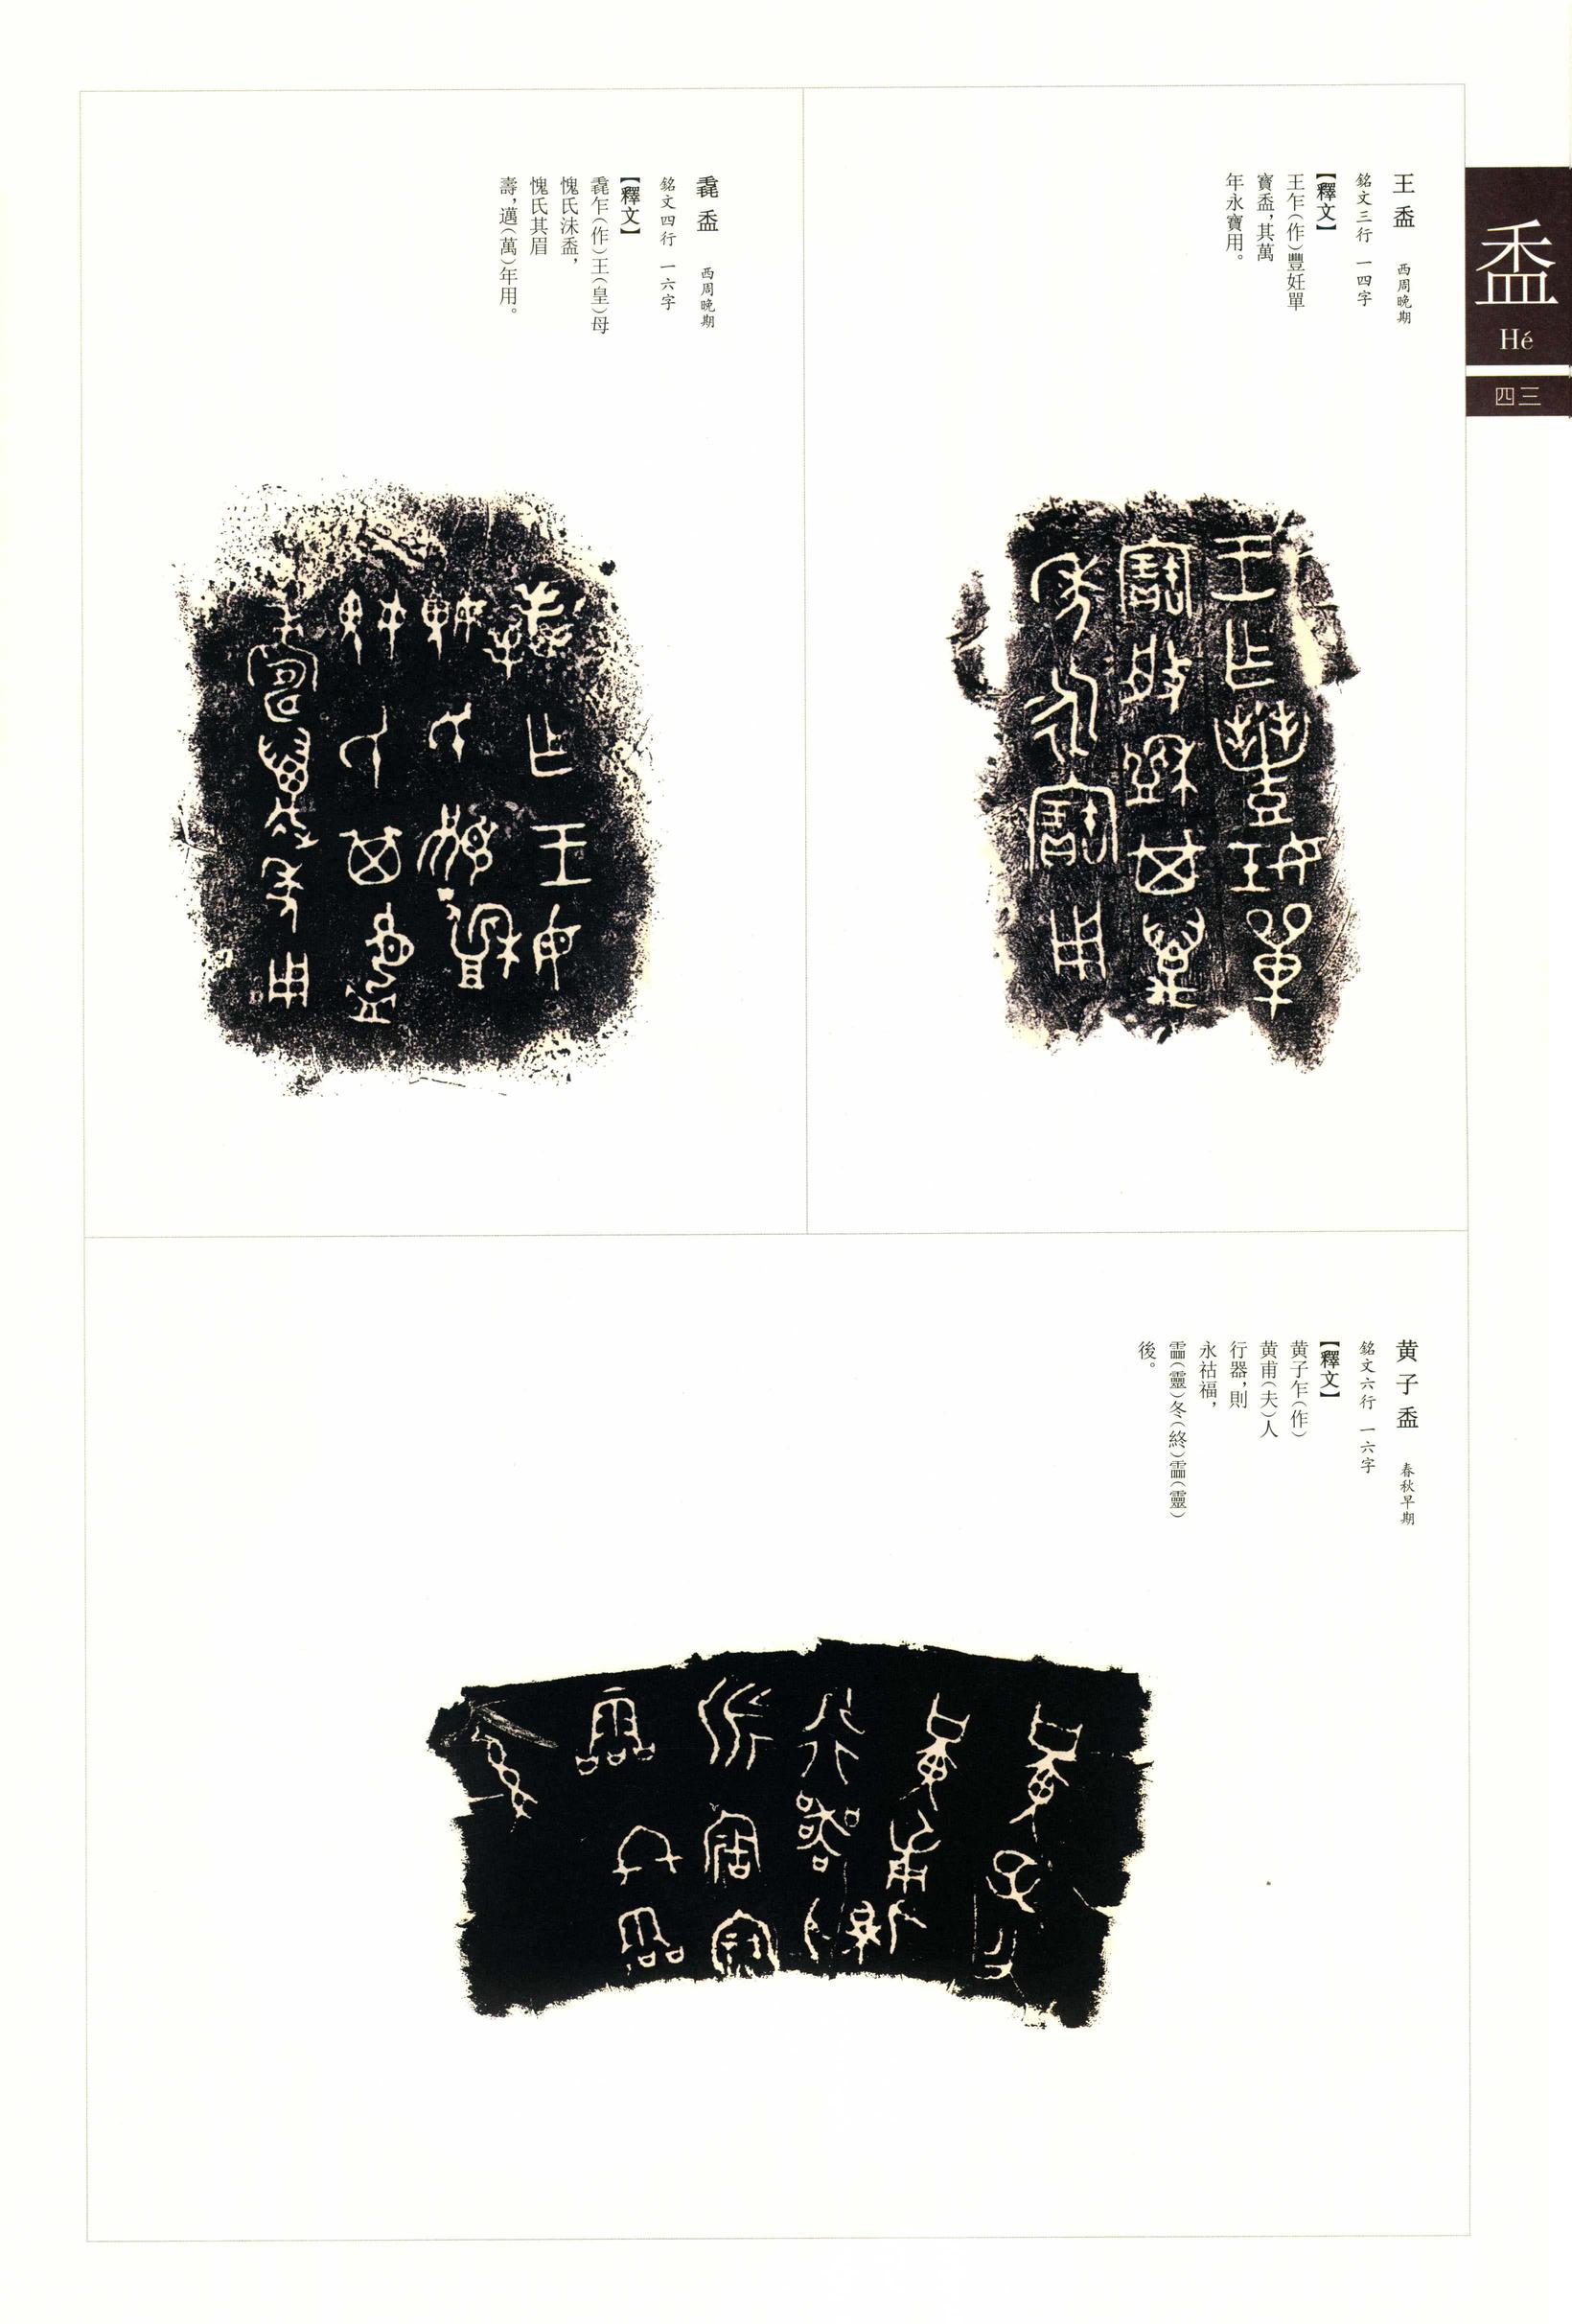 盉
Hé
四三
王盉 西周晚期
銘文三行 一四字
【釋文】
王乍(作)豐妊單
寶盉,其萬
年永寶用。
毳盉 西周晚期
銘文四行 一六字
【釋文】
毳乍(作)王(皇)母
媿氏沬盉,
媿氏其眉
壽,邁(萬)年用。
黄子盉 春秋早期
銘文六行 一六字
【釋文】
黄子乍(作)
黄甫(夫)人
行器,則
永祜福,
霝(靈)冬(終)霝(靈)
後。